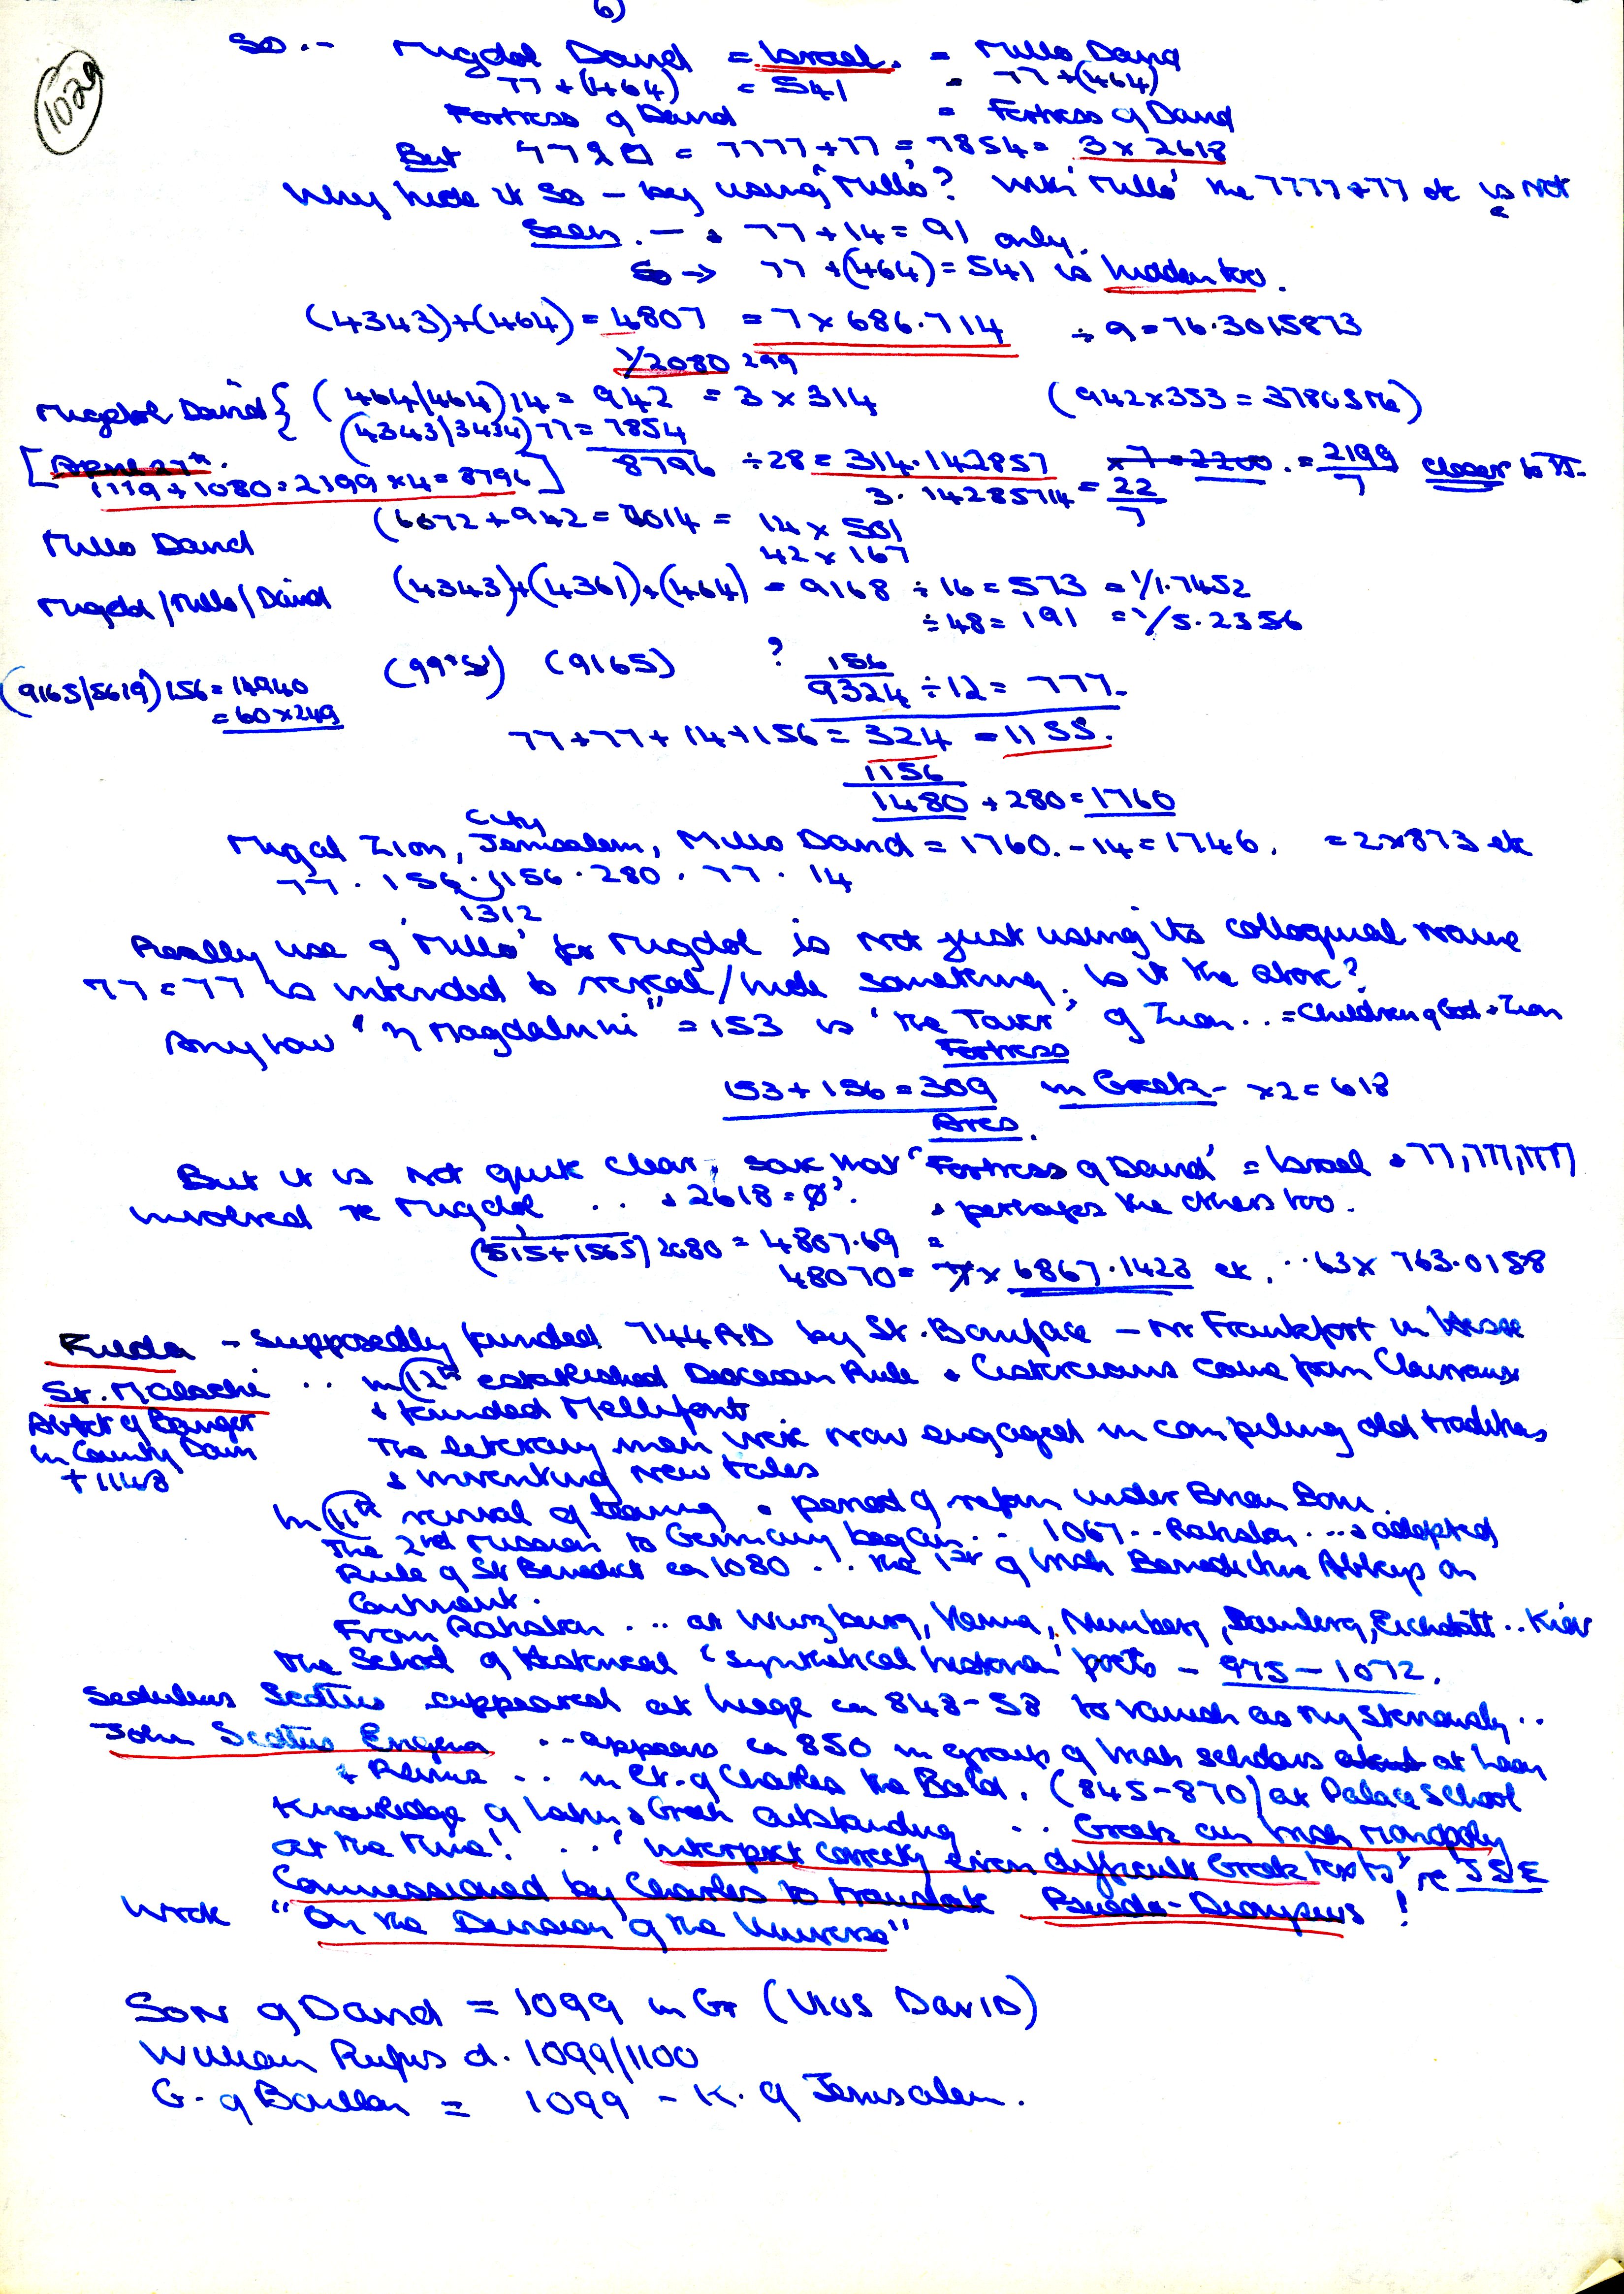 6)
1029
So.- Migdol David = Israel. = Millo David
77 + (464) = 541 = 77 + (464)
Fortress of David = Fortress of David
But = 7777 + 77 = 7854 = 3 x 2618
Why hide it so - by using 'Millo'? With 'Millo' the 7777+77 etc is not
seen. - + 77 + 14 = 91 only.
So → 77 + (464) = 541 is hidden too.
(4343)+(464) = 4807 = 7 x 686.714 ÷ 9 = 76.3015873
1/2080 299
Migdol David { (464/464) 14 = 942 = 3 x 314 (942 x 353 =
(4343/3434) 77 = 7854
[April 27th. 8796 ÷ 28 = 314.142857 x 7 = 2200. = 2199/7 closer to π.
1119 + 1080 = 2199 x 4 = 8796] 3.14285714 = 22/7
(6072 + 942 = 7014 = 14 x 501
Millo David 42 x 167
Migdol/Millo/David (4343)+(4361)+(464) = 9168 ÷ 16 = 573 = 1/1.7452
÷ 48 = 191 = 1/5.2356
(9165) ? 156
(9165/5619) 156 = 14940 9324 ÷ 12 = 777.
= 60 x 249
77 + 77 + 14 + 156 = 324 = 1155.
1156
1480 + 280 = 1760
City
Migdal Zion, Jerusalem, Millo David = 1760. - 14 = 1746. = 2 x 873 etc
77 . 156 . 1156 . 280 . 77 . 14
1312
Really use of 'Millo' for Migdol is not just using its colloquial name
77 = 77 is intended to reveal/hide something. Is it the above?
Anyhow "η Magdalini" = 153 is 'the Tower' of Zion .. = Children of God + Zion
Fortress
153 + 156 = 309 in Greek - x 2 = 618
Ares.
But it is not quite clear, save that 'Fortress of David' = Israel + 77, 777, 7777
involved re Migdol .. + 2618 = Ø'. + perhaps the others too.
(515 + 1565) 2080 = 4807.69 =
48070 = 7 x 6867.1428 etc. .. 63 x 763.0158
Fulda - supposedly funded 744 AD by St. Boniface - nr Frankfort in Hesse
St. Malachi .. in 12th established Diocesan Rule + Cistercians came from Clairvaux
Abbot of Bangor + funded Mellifont.
in County Down The literary men were now engaged in compiling old traditions
+ 1148 + inventing new tales
In 11th revival of learning + period of reform under Brian Boru.
The 2nd Mission to Germany began .. 1067 .. Ratisbon ... + adopted
Rule of St Benedict ca 1080 .. the 1st of Irish Benedictine Abbeys on
Continent.
From Ratisbon ... at Wurzburg, Vienna, Nurnberg, Bamberg, Eichstatt .. Kiev
The School of Historical 'synthetical historian' poets - 975 - 1072.
Sedulius Scottus appeared at Liege ca 848-58 to vanish as mysteriously ..
John Scottus Erigena .. appears ca 850 in group of Irish scholars at Laon
+ Reims .. in Ct. of Charles the Bald. (845-870) at Palace School
Knowledge of Latin + Greek outstanding .. Greek an Irish Monopoly
at the time! .. 'interpret correctly even difficult Greek texts' re JSE
Commissioned by Charles to translate Pseudo-Dionysius!
Wrote "On the Division of the Universe"
Son of David = 1099 in Gr (UIOS DAVID)
William Rufus d. 1099/1100
G. of Bouillon = 1099 - K. of Jerusalem.